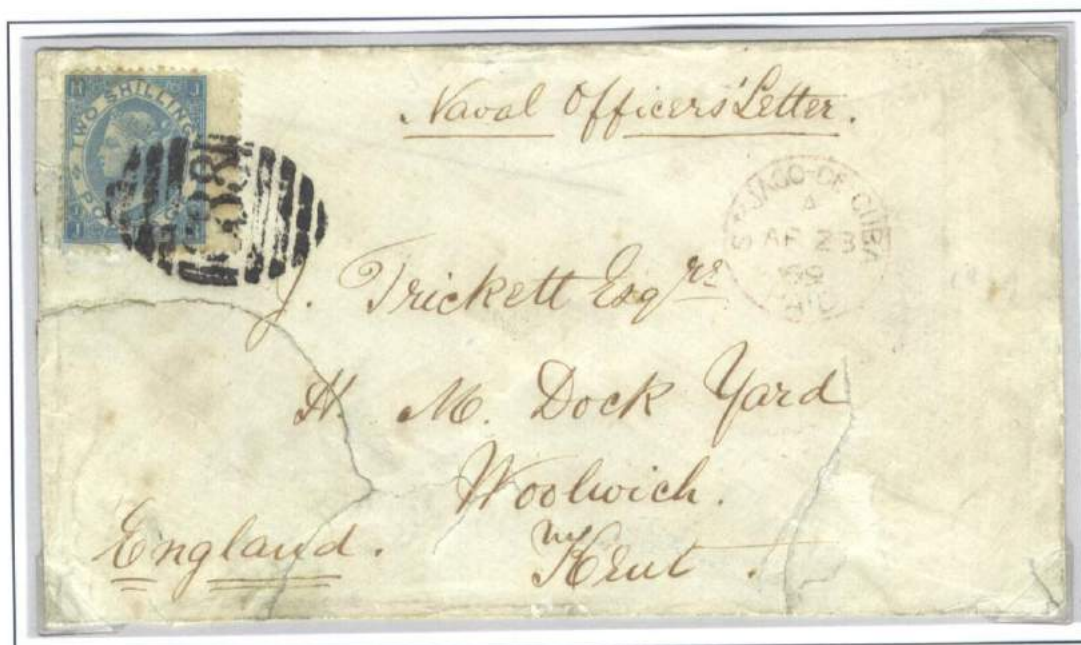 H J
TWO SHILLINGS
POSTAGE
J H
Naval Officers' Letter.
ST JAGO-DE-CUBA
A
AP 23
J. Trickett Esqre
H. M. Dock Yard
Woolwich.
Kent.
England.